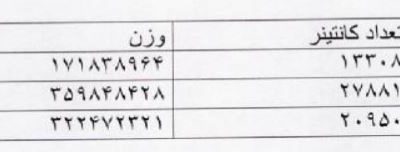 تعداد کانتینر وزن
۱۳۳۰۸ ۱۷۱۸۳۸۹۶۴
۲۷۸۸۱ ۳۵۹۸۴۸۴۲۸
۲۰۹۵۰ ۳۲۲۴۷۲۳۲۱